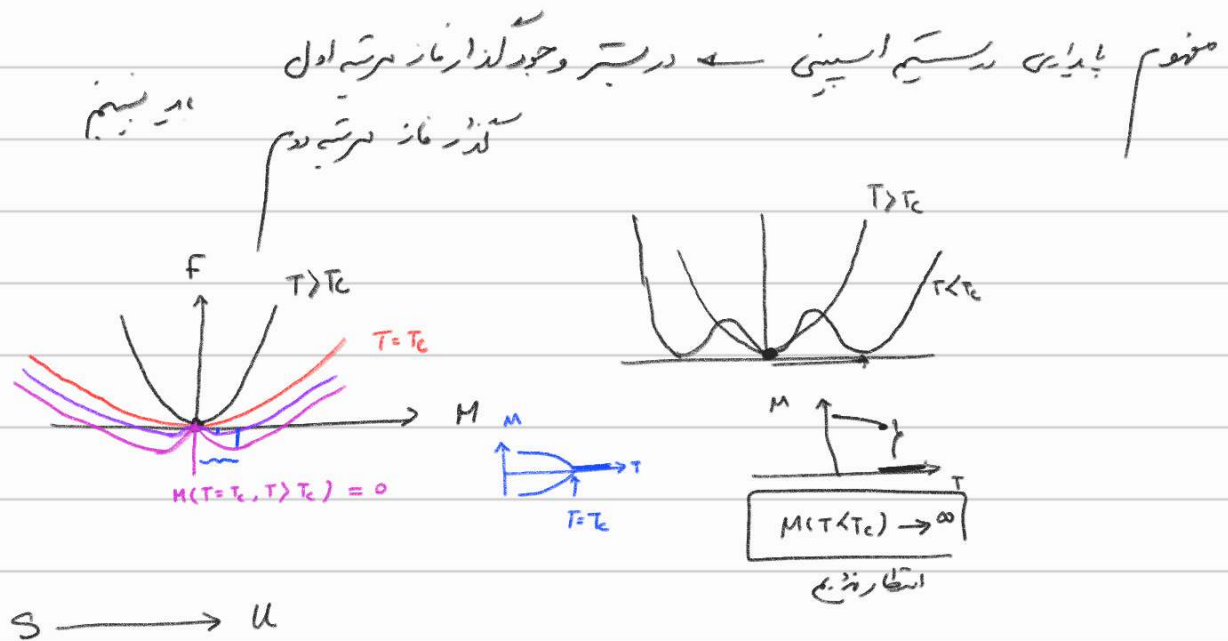 مفهوم پایداری در سیستم اسپینی ← در بستر وجود گذار فاز مرتبه اول
گذار فاز مرتبه دوم
T>Tc
F
T>Tc
T<Tc
T=Tc
M
M
M
T
T
M(T=Tc, T>Tc) = 0
T=Tc
M(T<Tc) → ∞
انتظار نداریم
S → U